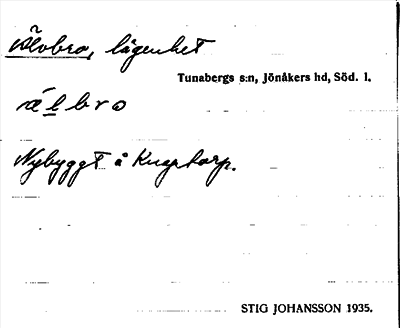 Älvbro, lägenhet
Tunabergs s:n, Jönåkers hd, Söd. l.
älbro
Nybyggt å
STIG JOHANSSON 1935.